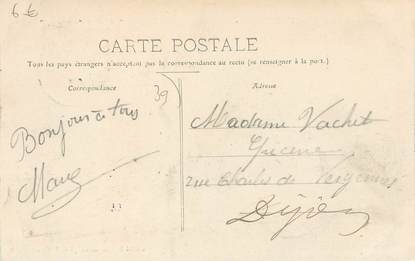 6 €
CARTE POSTALE
Tous les pays étrangers n'acceptent pas la correspondance au recto (se renseigner à la poste.)
Correspondance
Adresse
39
Bonjour à tous
Madame Vachet
rue de Vergennes
Dijon